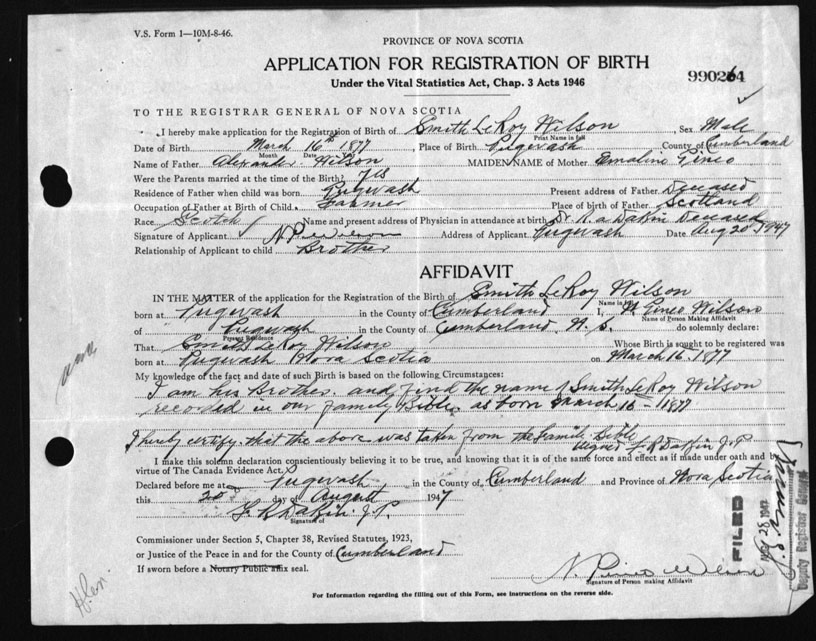 V.S. Form 1—10M-8-46.
PROVINCE OF NOVA SCOTIA
APPLICATION FOR REGISTRATION OF BIRTH
990264
Under the Vital Statistics Act, Chap. 3 Acts 1946
TO THE REGISTRAR GENERAL OF NOVA SCOTIA
I hereby make application for the Registration of Birth of Smith LeRoy Wilson Sex Male
Print Name in full
Date of Birth March 16th 1877, Place of Birth Pugwash County of Cumberland
Month Date
Name of Father Alexander Wilson MAIDEN NAME of Mother Emaline Pineo
Were the Parents married at the time of the Birth? yes
Residence of Father when child was born Pugwash Present address of Father Deceased
Occupation of Father at Birth of Child Farmer Place of birth of Father Scotland
Race Scotch Name and present address of Physician in attendance at birth Dr. Dakin Deceased
Signature of Applicant N P Wilson Address of Applicant Pugwash Date Aug 20 1947
Relationship of Applicant to child Brother
AFFIDAVIT
IN THE MATTER of the application for the Registration of the Birth of Smith LeRoy Wilson
Name in full
born at Pugwash in the County of Cumberland I, N Pineo Wilson
Name of Person Making Affidavit
of Pugwash in the County of Cumberland, N.S. do solemnly declare:
Present Residence
That Smith LeRoy Wilson Whose Birth is sought to be registered was
born at Pugwash Nova Scotia on March 16, 1877
My knowledge of the fact and date of such Birth is based on the following Circumstances:
I am his Brother and find the name of Smith LeRoy Wilson
recorded in our family Bible as born March 16 - 1877
I hereby certify that the above was taken from the Family Bible
Signed Dakin J.P.
I make this solemn declaration conscientiously believing it to be true, and knowing that it is of the same force and effect as if made under oath and by
virtue of The Canada Evidence Act.
Declared before me at Pugwash, in the County of Cumberland and Province of Nova Scotia
this 20 day of August 1947
Dakin J.P.
Signature of
Commissioner under Section 5, Chapter 38, Revised Statutes, 1923,
or Justice of the Peace in and for the County of Cumberland
If sworn before a Notary Public affix seal.
N. Pineo Wilson
Signature of Person making Affidavit
For Information regarding the filling out of this Form, see Instructions on the reverse side.
FILED
28 1947
Deputy Registrar General